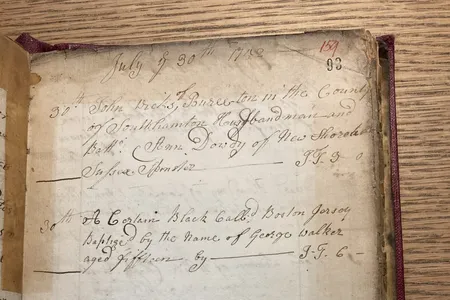 July ye 30th
159
93
30th John of Bureeton in the County
of Southhamton Husbandman and
Ann Dowdy of New Shoreham
Sussex Spinster J.F. 3 0
30th A Certain Black Call'd Boston Jersey
Baptiz'd by the Name of George Walker
aged fifteen by J.F. 6